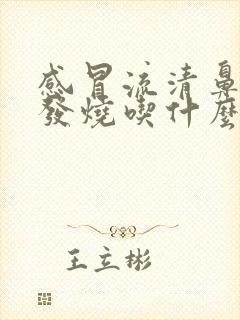 感冒流清鼻
發燒喫什麼
王立彬